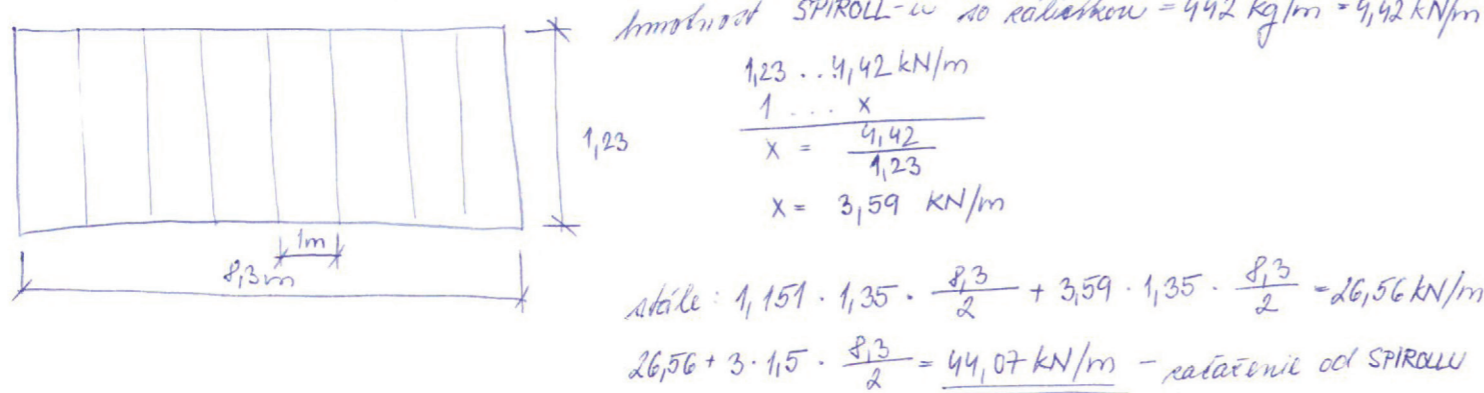 hmotnosť SPIROLL-u so zálievkou = 442 kg/m = 4,42 kN/m
1,23 .. 4,42 kN/m
1 ... x
x = 4,42 / 1,23
x = 3,59 kN/m
1,23
1m
8,3m
stále: 1,151 · 1,35 · 8,3/2 + 3,59 · 1,35 · 8,3/2 = 26,56 kN/m
26,56 + 3 · 1,5 · 8,3/2 = 44,07 kN/m - zaťaženie od SPIROLLU